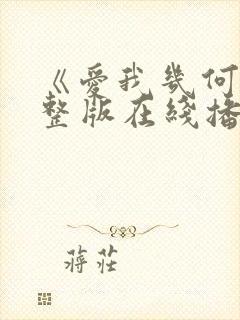 《爱我幾何
整版在綫播
蒋莊